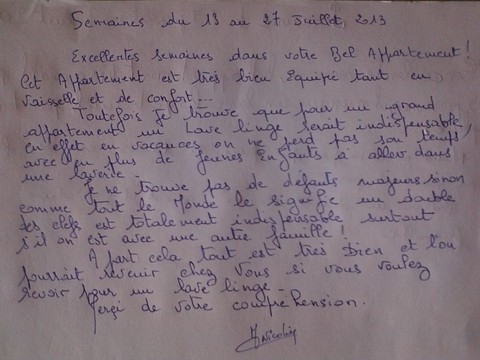 Semaines du 13 au 27 Juillet 2013
Excellentes semaines dans votre Bel Appartement!
Cet Appartement est très bien Equipé tant en
vaisselle et de confort...
Toutefois Je trouve que pour un grand
appartement un Lave linge serait indispensable,
en effet en vacances on ne perd pas son temps,
avec en plus de jeunes Enfants à aller dans
une laverie -
Je ne trouve pas de défauts majeurs sinon
comme tout le Monde le signale un double
des clefs est totalement indispensable surtout
s'il on est avec une autre famille!
A part cela tout est très bien et l'on
pourrait revenir chez Vous si vous voulez
revoir pour un lave linge -
Merçi de votre compréhension.